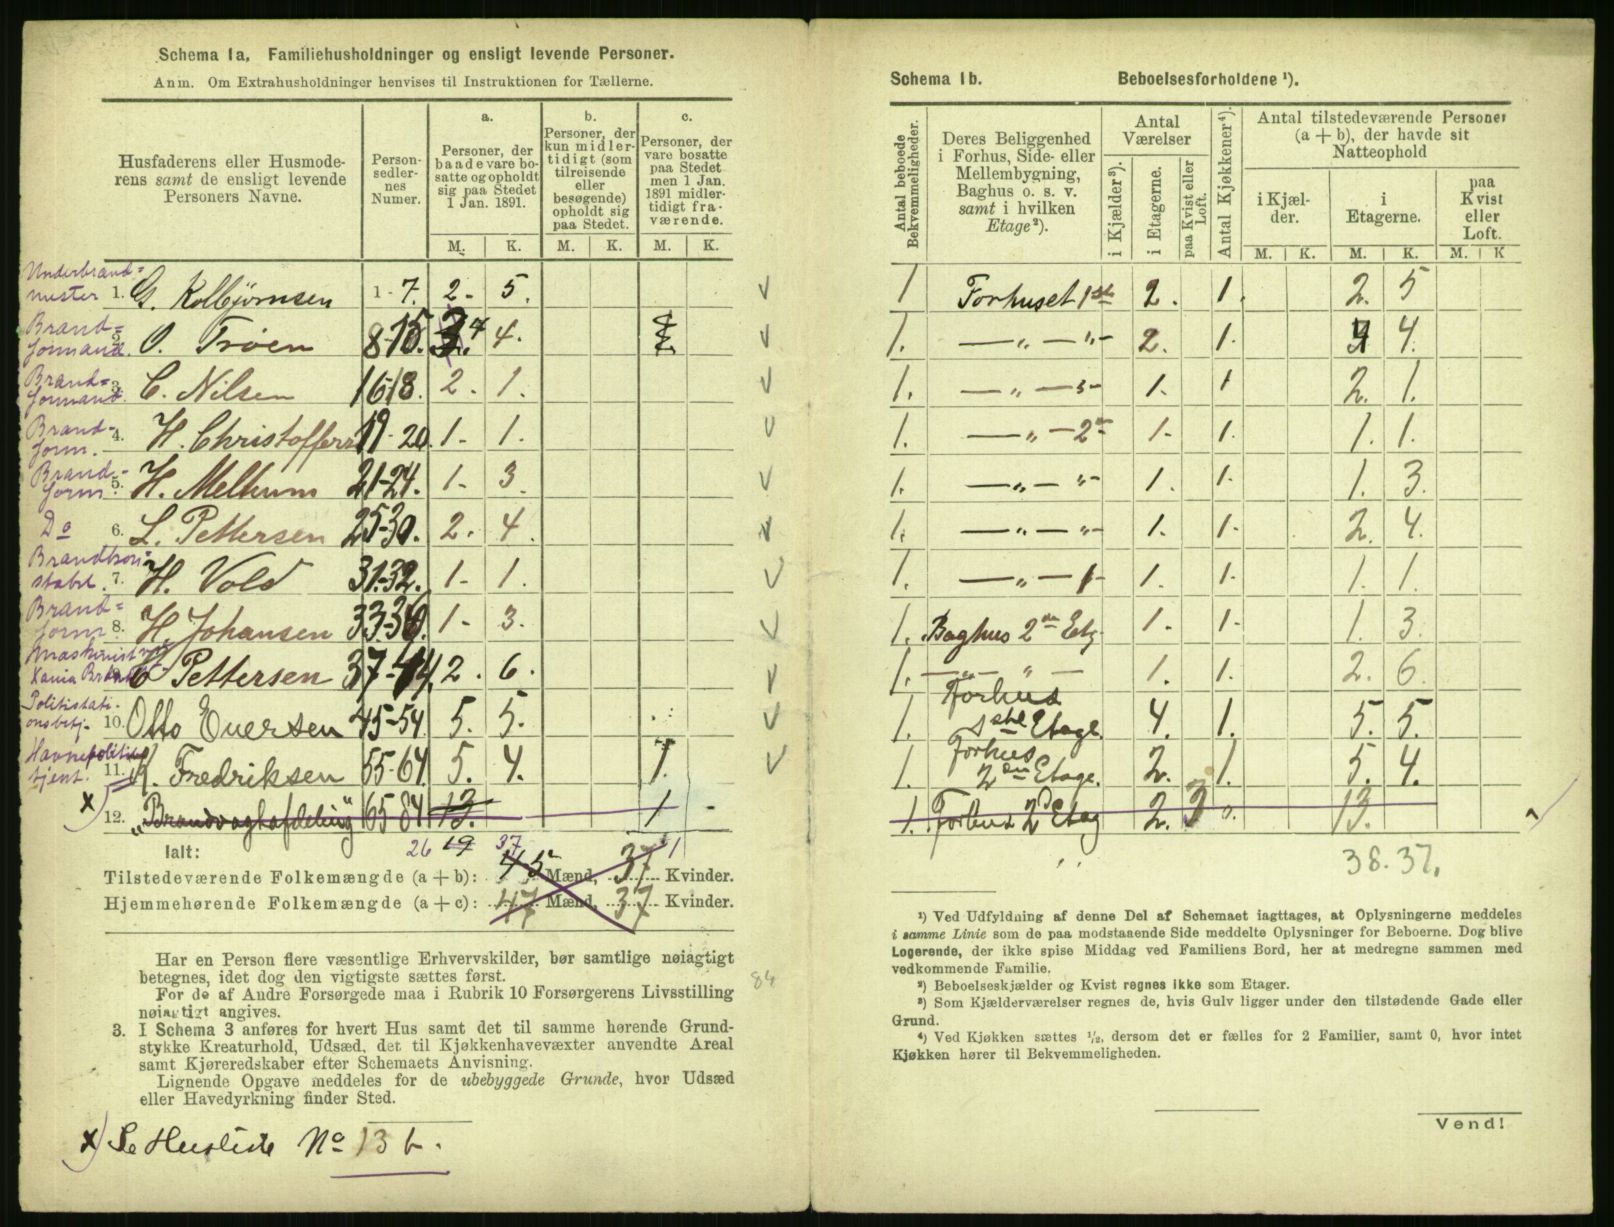 Schema 1a. Familiehusholdninger og ensligt levende Personer.
Anm. Om Extrahusholdninger henvises til Instruktionen for Tællerne.
Husfaderens eller Husmoderens samt de ensligt levende Personers Navne.
Personsedlernes Numer.
a. Personer, der baade vare bosatte og opholdt sig paa Stedet 1 Jan. 1891.
b. Personer, der kun midlertidigt (som tilreisende eller besøgende) opholdt sig paa Stedet.
c. Personer, der vare bosatte paa Stedet men 1 Jan. 1891 midlertidigt fraværende.
M. K. M. K. M. K.
Underbrandmester 1. G. Kolbjørnsen 1-7. 2. 5.
Brandformand. 2. O. Trøen 8-15. 4 4.
Brandformand. 3. C. Nilsen 16-18. 2. 1.
Brandform. 4. H. Christoffers 19-20. 1- 1.
Brandform. 5. H. Melhum 21-24. 1- 3.
Do 6. L. Pettersen 25-30. 2. 4.
7. H. Vold 31-32. 1- 1.
Brandform. 8. H. Johansen 33-36. 1- 3.
9. C. Pettersen 37-44. 2. 6.
Politistationsbetj. 10. Otto Eversen 45-54. 5. 5.
Havnepolitibtjent. 11. K. Fredriksen 55-64. 5. 4. 1.
x) 12. "Brandvagtafdeling" 65 84 13. 1 -
Ialt: 26 19 37 1
Tilstedeværende Folkemængde (a + b): 45 Mænd, 37 Kvinder.
Hjemmehørende Folkemængde (a + c): 47 Mænd, 37 Kvinder.
Har en Person flere væsentlige Erhvervskilder, bør samtlige nøiagtigt
betegnes, idet dog den vigtigste sættes først.
For de af Andre Forsørgede maa i Rubrik 10 Forsørgerens Livsstilling
nøiagtigt angives.
3. I Schema 3 anføres for hvert Hus samt det til samme hørende Grund-
stykke Kreaturhold, Udsæd, det til Kjøkkenhavevæxter anvendte Areal
samt Kjøreredskaber efter Schemaets Anvisning.
Lignende Opgave meddeles for de ubebyggede Grunde, hvor Udsæd
eller Havedyrkning finder Sted.
84
x) Se Husliste No 13 b.
Schema 1b. Beboelsesforholdene ¹).
Antal beboede Bekvemmeligheder.
Deres Beliggenhed i Forhus, Side- eller Mellembygning, Baghus o. s. v. samt i hvilken Etage²).
Antal Værelser
i Kjælder³).
i Etagerne.
paa Kvist eller Loft.
Antal Kjøkkener⁴).
Antal tilstedeværende Personer (a + b), der havde sit Natteophold
i Kjælder.
i Etagerne.
paa Kvist eller Loft.
M. K. M. K. M. K
1 Forhuset 1ste 2. 1. 2. 5
1. —„—„— 2. 1. 4 4.
1. —„—„— 1. 1 2. 1.
1. —„—2den 1- 1. 1. 1.
1. —„—„— 1. 1. 1. 3.
1. —„—„— 1. 1- 2. 4.
1. —„— 1. 1- 1. 1.
1. Baghus 2den Etg. 1. 1- 1. 3.
1. —„—„— 1. 1. 2. 6.
1. Forhus 1ste Etage. 4. 1. 5. 5.
1. Forhus 2den Etage. 2. 1. 5. 4.
1. Forhus 2d Etag 2. 3 0. 13.
38. 37.
¹) Ved Udfyldning af denne Del af Schemaet iagttages, at Oplysningerne meddeles
i samme Linie som de paa modstaaende Side meddelte Oplysninger for Beboerne. Dog blive
Logerende, der ikke spise Middag ved Familiens Bord, her at medregne sammen med
vedkommende Familie.
²) Beboelseskjælder og Kvist regnes ikke som Etager.
³) Som Kjælderværelser regnes de, hvis Gulv ligger under den tilstødende Gade eller
Grund.
⁴) Ved Kjøkken sættes ½, dersom det er fælles for 2 Familier, samt 0, hvor intet
Kjøkken hører til Bekvemmeligheden.
Vend!